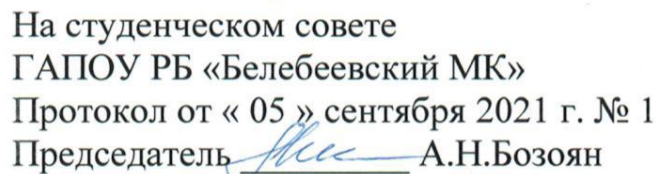 На студенческом совете
ГАПОУ РБ «Белебеевский МК»
Протокол от « 05 » сентября 2021 г. № 1
Председатель А.Н.Бозоян